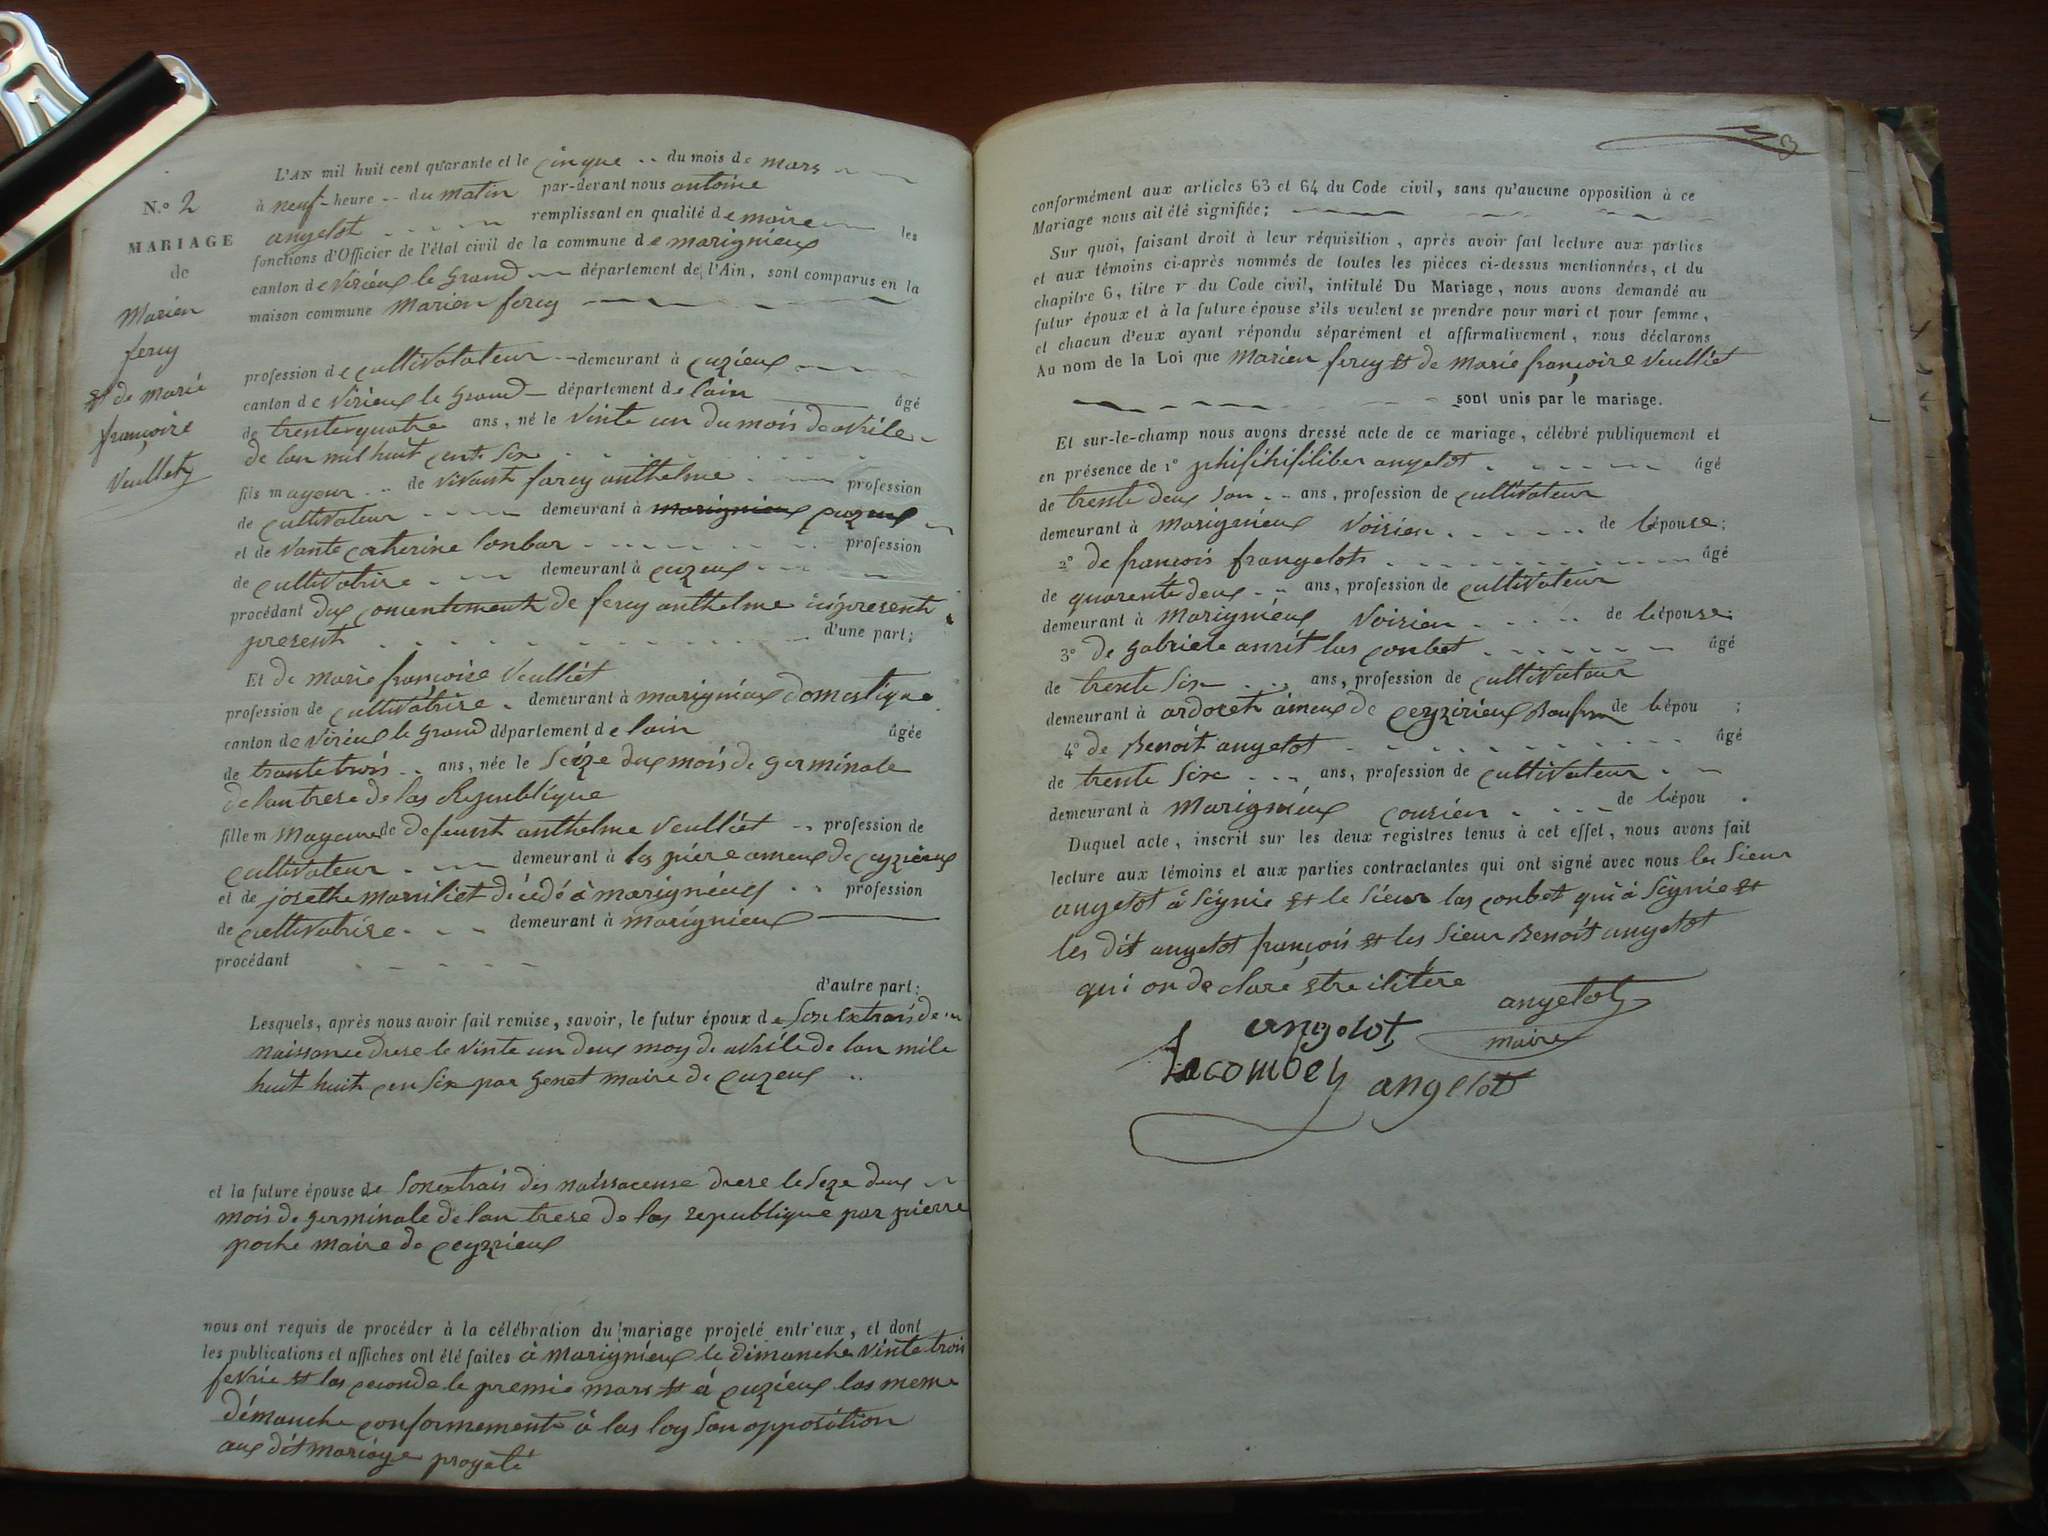 N.o 2
MARIAGE
de
Marien
fercy
et de marie
françoise
Veulliet
L'AN mil huit cent quarante et le cinque du mois de mars
à neuf heure du matin par-devant nous antoine
angelot remplissant en qualité de maire les
fonctions d'Officier de l'état civil de la commune de marignieux
canton de Virieux le grand département de l'Ain, sont comparus en la
maison commune Marien fercy
profession de cultivatateur demeurant à cuzieux
canton de Virieux le grand département de lain âgé
de trente quatre ans, né le Vinte un du mois de avrile
de lan mil huit cent six
fils mageur de vivant farcy anthelme profession
de cultivateur demeurant à marignieux cuzieux
et de vante catherine lonbar profession
de cultivatrise demeurant à cuzeux
procédant dux concentement de fercy anthelme ici present
present d'une part;
Et de marie françoise Veulliet
profession de cultivatrise demeurant à marignieux domestique
canton de virieux le grand département de lain âgée
de trante trois ans, née le Seize dux mois de germinale
de lan trese de las Republique
fille m mageure de defeunt anthelme Veulliet profession de
cultivateur demeurant à las piere ameux de ceyzirieux
et de josethe marniliet décédé à marignieux profession
de cultivatrise demeurant à marignieux
procédant
d'autre part:
Lesquels, après nous avoir fait remise, savoir, le futur époux de Son extrais de
naissance drese le vinte un deux moy de avrile de lan mile
huit huit cen six par genet maire de cuzeux
et la future épouse de Son extrais des naissacense drese le Seze deux
mois de germinale de lan trese de las republique par pierre
poche maire de ceyzrieux
nous ont requis de procéder à la célébration du mariage projeté entr'eux, et dont
les publications et affiches ont été faites à marignieux le dimanche vinte trois
fevrie et las ceconde le premie mars et à cuzieux las meme
démanche conformemente à las loy San opposition
aux dit mariage progeté
conformément aux articles 63 et 64 du Code civil, sans qu'aucune opposition à ce
Mariage nous ait été signifiée;
Sur quoi, faisant droit à leur réquisition, après avoir fait lecture aux parties
et aux témoins ci-après nommés de toutes les pièces ci-dessus mentionnées, et du
chapitre 6, titre v du Code civil, intitulé Du Mariage, nous avons demandé au
futur époux et à la future épouse s'ils veulent se prendre pour mari et pour femme,
et chacun d'eux ayant répondu séparément et affirmativement, nous déclarons
Au nom de la Loi que Marien fercy et de Marie françoise Veulliet
sont unis par le mariage.
Et sur-le-champ nous avons dressé acte de ce mariage, célébré publiquement et
en présence de 1o angelot âgé
de trente deux san ans, profession de cultivateur
demeurant à marignieux voisien de l'épouse;
2o de francois frangelot âgé
de quarente deux ans, profession de cultivateur
demeurant à Marignieux Voisien de l'épouse;
3o de gabriele anrit las conbet âgé
de trente six ans, profession de cultivateur
demeurant à ardoset ameux de ceyzirieux de l'épou ;
4o de Benoit angelot âgé
de trente Sixe ans, profession de cultivateur
demeurant à Marignieux cousien de l'épou
Duquel acte, inscrit sur les deux registres tenus à cet effet, nous avons fait
lecture aux témoins et aux parties contractantes qui ont signé avec nous les Sieur
angelot à Séynie et le Sieur las conbet qui à Séynie et
les dit angelot françois et les Sieur Benoit angelot
qui on declare stre iletere
angelot
maire
angelot
Lacombey
angelot